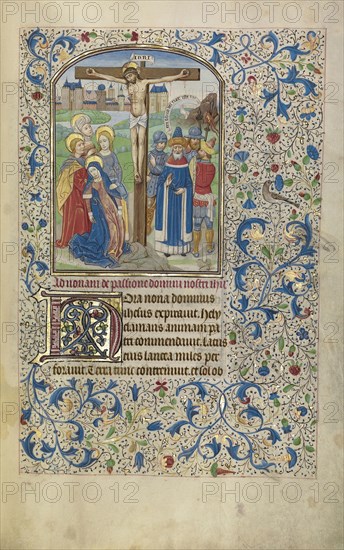 INRI
Ad nonam de passione domini nostri ihu
Ora nona dominus
ihesus expiravit. Hely
clamans animam pa
tri commendavit. Latus
eius lancea miles per
foravit. Terra tunc contremuit. et sol ob